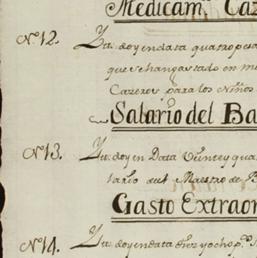 Medicam.s Caz
N.o 12. Ya doy en data quatro pesos
que se han gastado en me
Cazeros para los Niños
Salario del Ba
N.o 13. Ya doy en Data Veinte y qua
lario del Maestro de B
Gasto Extraor
N.o 14. Ya doy en data diez y ocho p.s